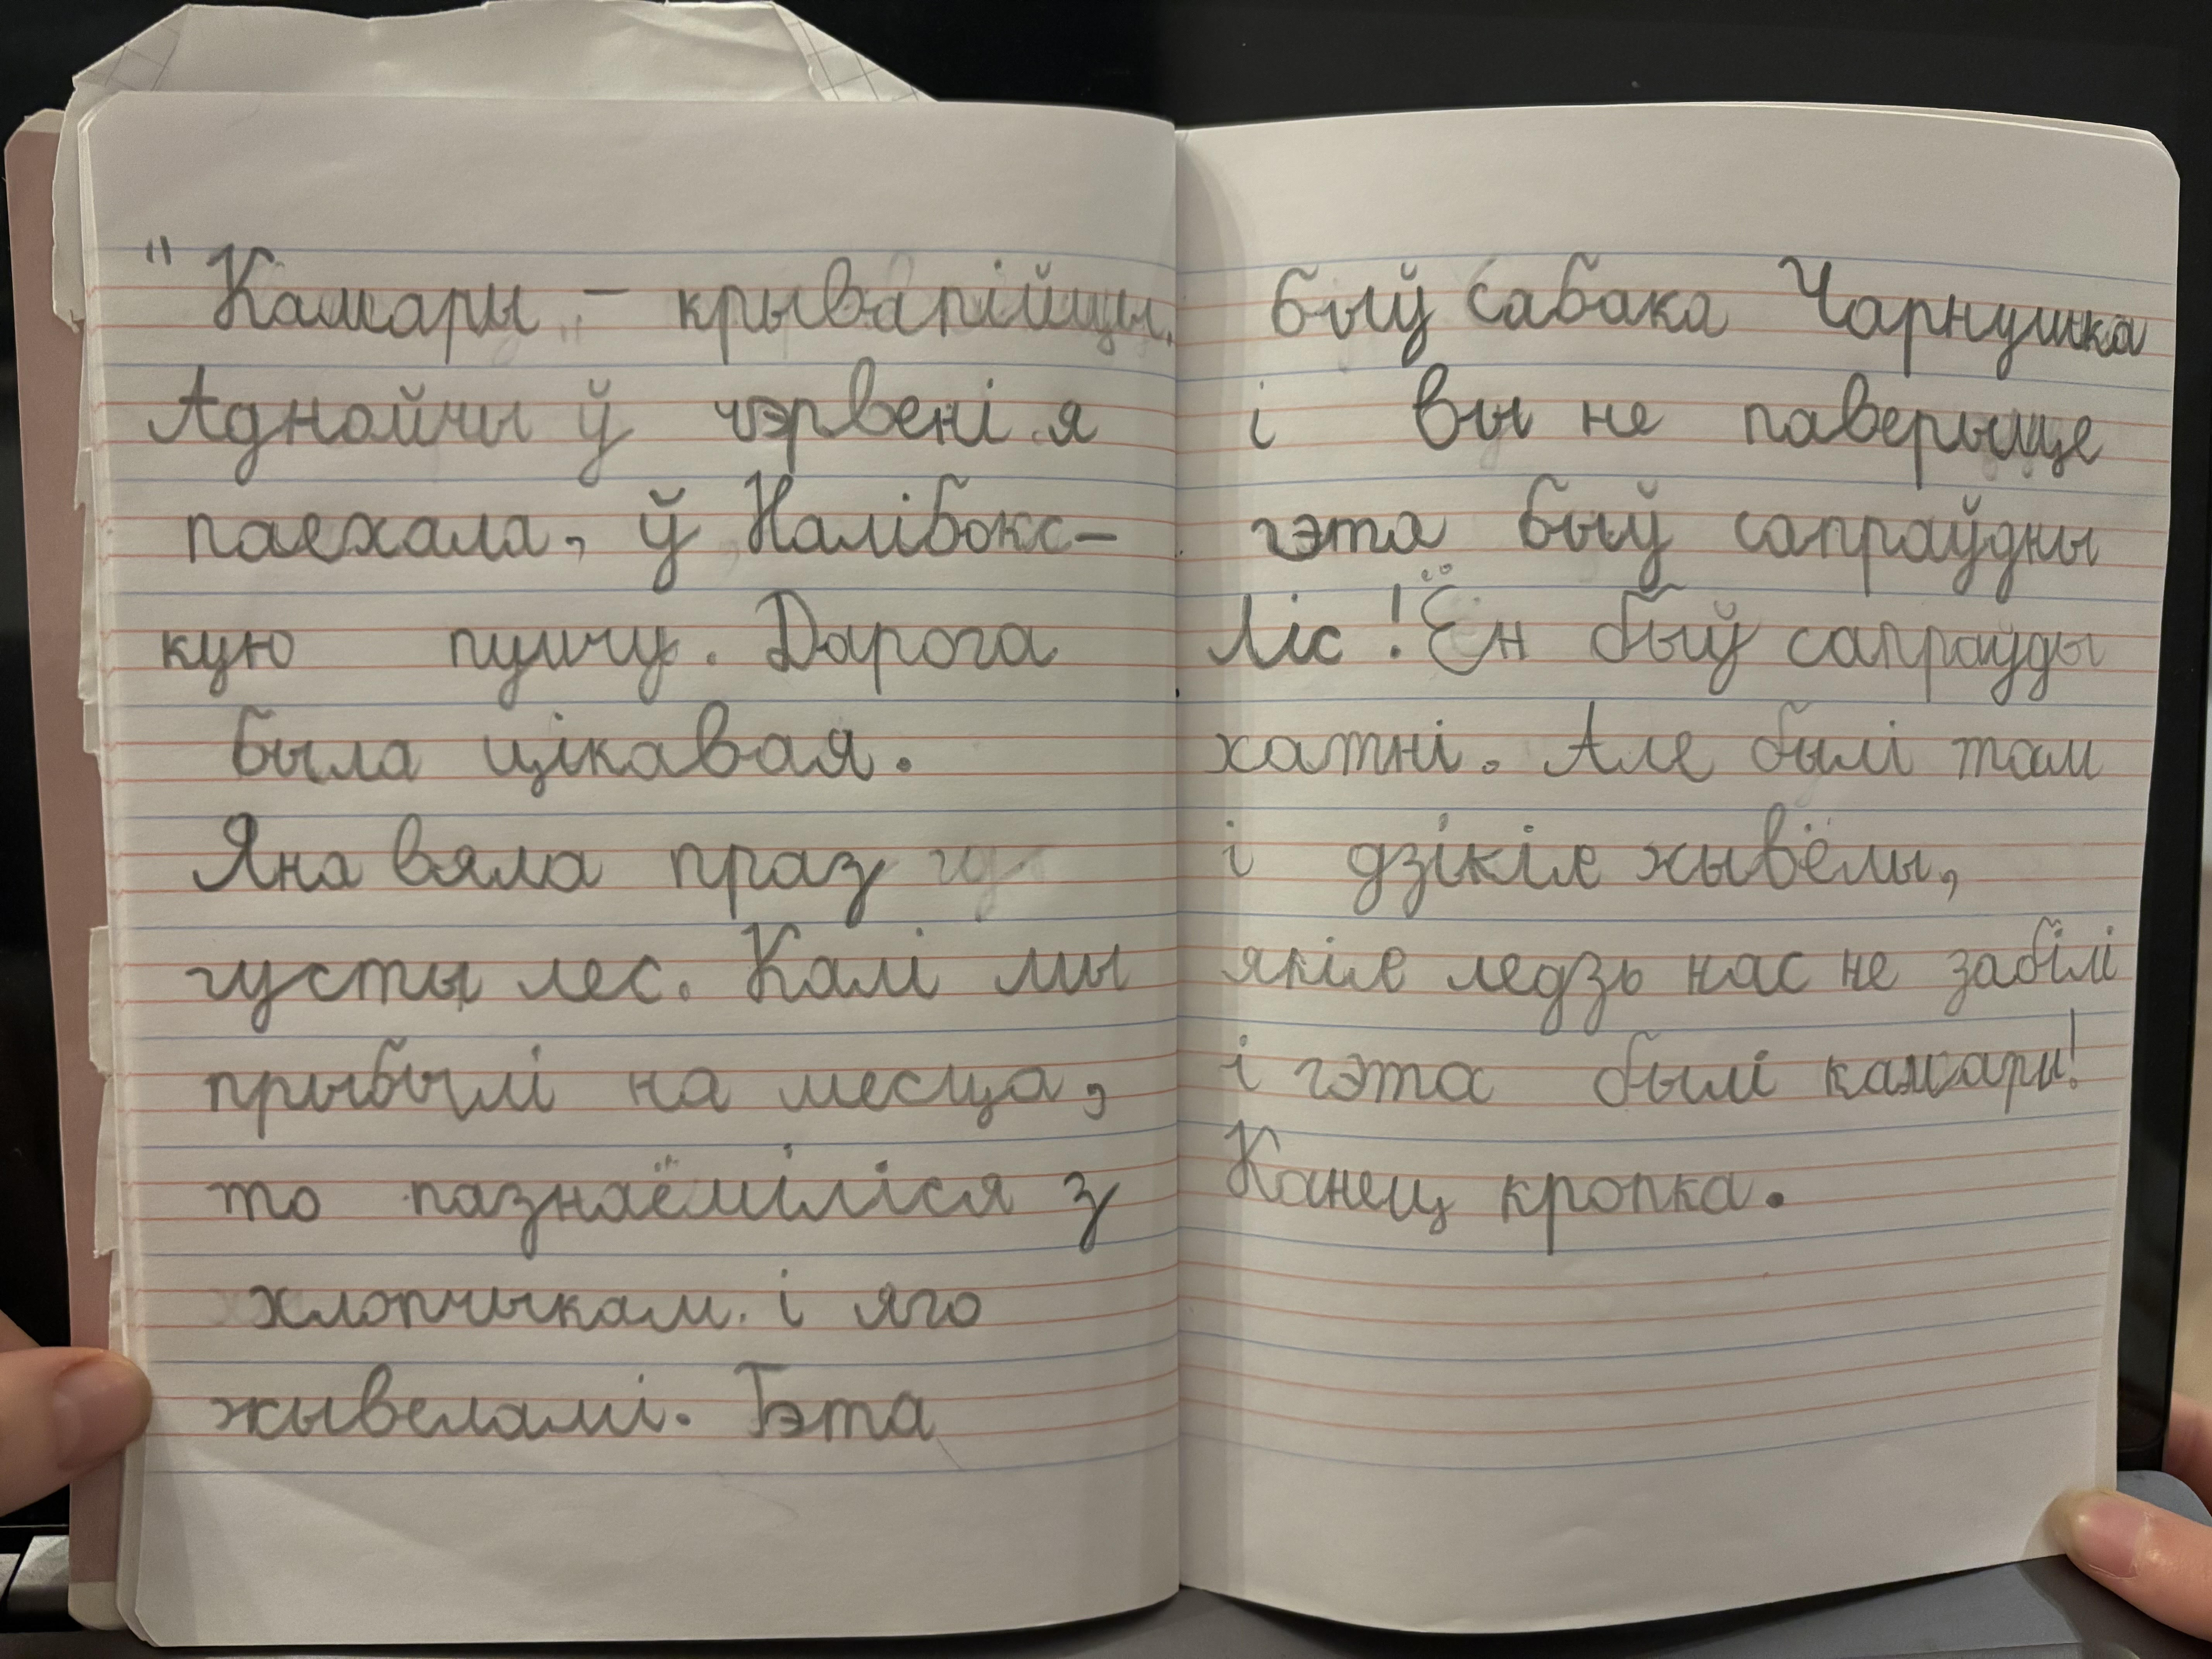 "Камары - крывапійцы.
Аднойчы ў чэрвені я
паехала, ў Налібокс-
кую пушчу. Дарога
была цікавая.
Яна вяла праз
густы лес. Калі мы
прыбылі на месца,
то пазнаёміліся з
хлопчыкам і яго
жывеламі. Гэта
быў сабака Чарнушка
і вы не паверыце
гэта быў сапраўдны
Ліс! Ён быў сапрауды
хатні. Але былі там
і дзікіе жывёлы,
якіе ледзь нас не забілі
і гэта былі камары!
Канец кропка.